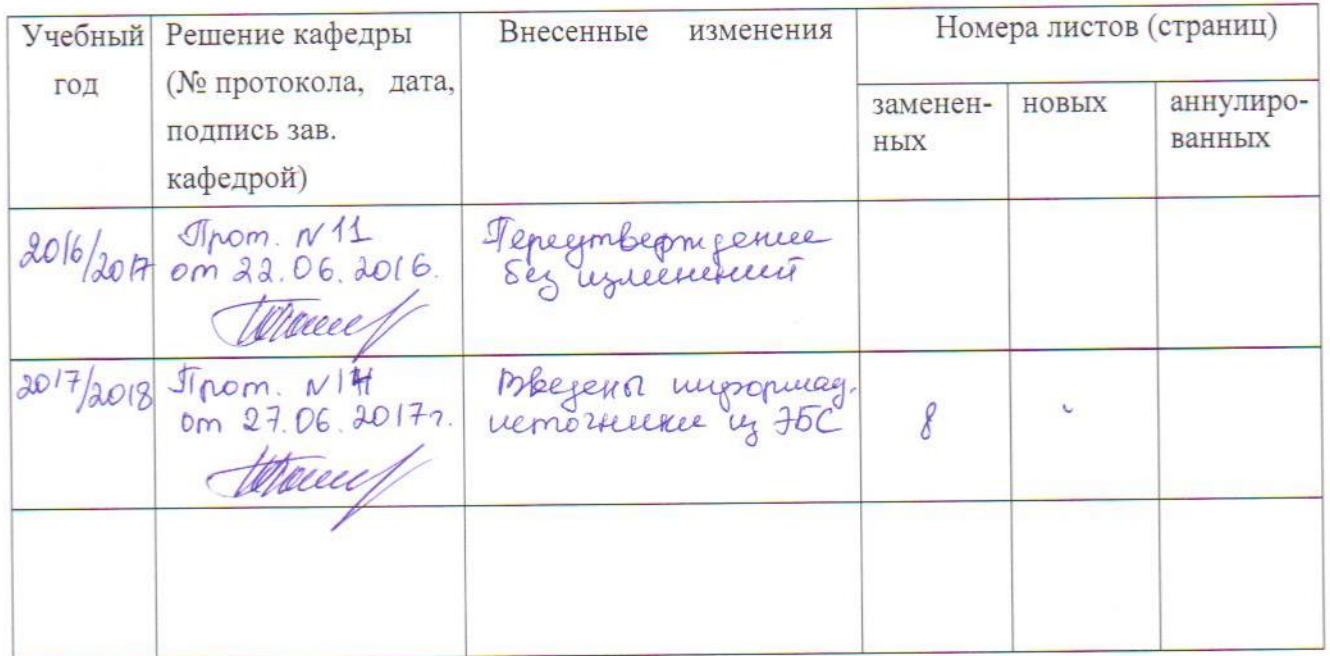 Учебный год
Решение кафедры
(№ протокола, дата,
подпись зав.
кафедрой)
Внесенные изменения
Номера листов (страниц)
заменен-
ных
новых
аннулиро-
ванных
2016/2017
Прот. N 11
от 22.06.2016.
Переутверждение
без изменений
2017/2018
Прот. N 14
от 27.06.2017г.
Введены информац.
источники из ЭБС
8